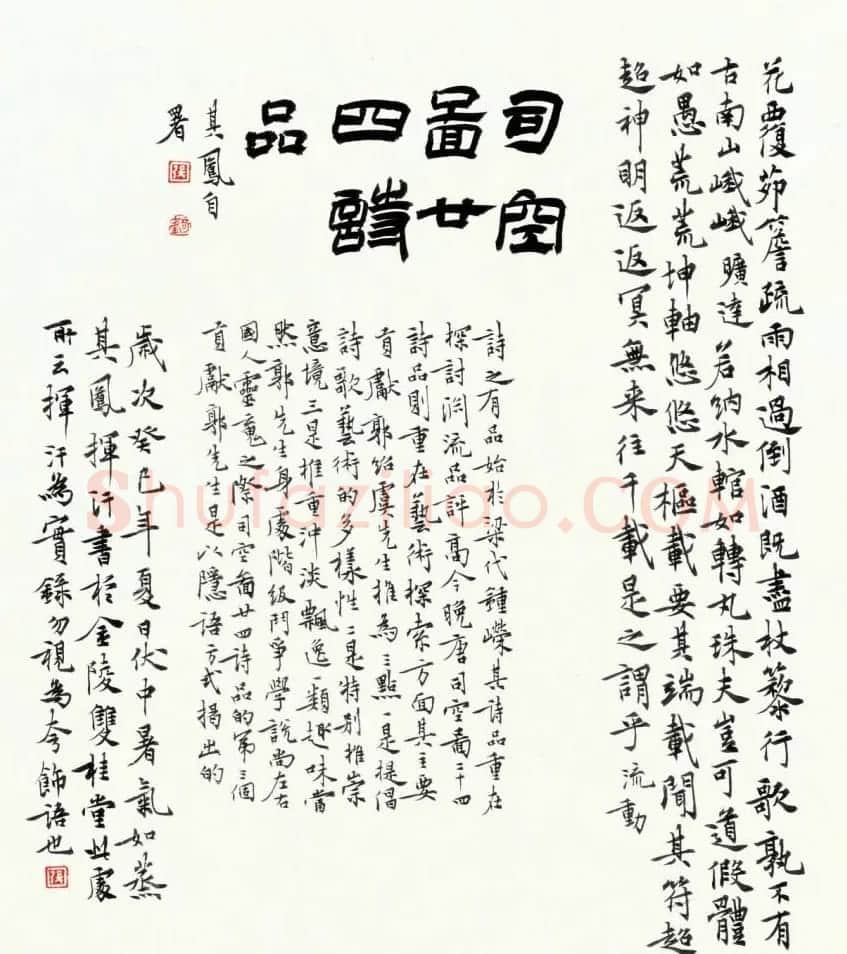 花覆茆簷疏雨相過倒酒既盡杖藜行歌孰不有
古南山峨峨曠達若納水輨如轉丸珠夫豈可道假體
如愚荒荒坤軸悠悠天樞載要其端載聞其符超
超神明返返冥無来往千載是之謂乎流動
司空
圖廿
四詩
品
其鳳自
署
詩之有品始於梁代鍾嶸其詩品重在
探討淵流品評高今晚唐司空圖二十四
詩品則重在藝術探索方面其主要
貢獻郭紹虞先生推為三點一是提倡
詩歌藝術的多樣性二是特别推崇
意境三是推重沖淡飄逸一類趣味當
然郭先生身處階級鬥爭學說尚在右
國人靈魂之際司空圖廿四詩品的第三個
貢獻郭先生是以隱語方式揭出的
歲次癸巳年夏日伏中暑氣如蒸
其鳳揮汗書於金陵雙桂堂此處
所云揮汗為實錄勿視為夸飾語也
Shufaziliao.COM